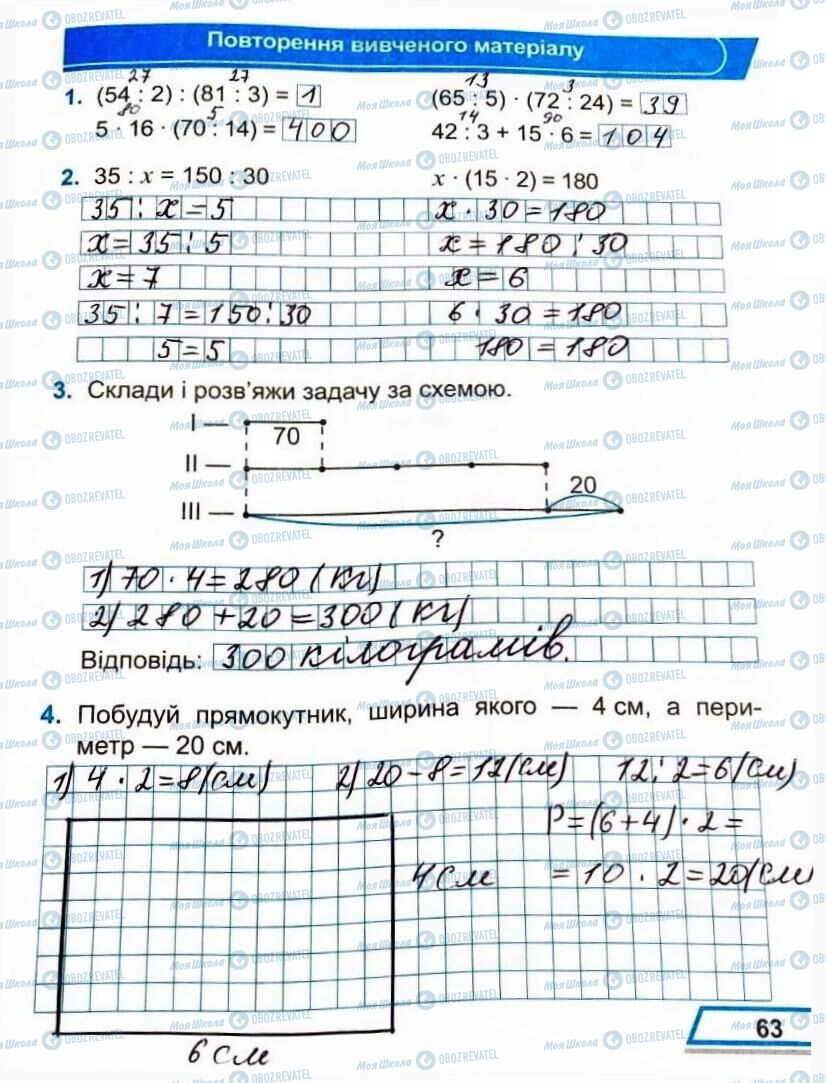 Повторення вивченого матеріалу
27 27 13 3
1. (54 : 2) : (81 : 3) = 1 (65 : 5) · (72 : 24) = 39
80 5 14 90
5 · 16 · (70 : 14) = 400 42 : 3 + 15 · 6 = 104
2. 35 : x = 150 : 30 x · (15 · 2) = 180
35 : x = 5 x · 30 = 180
x = 35 : 5 x = 180 : 30
x = 7 x = 6
35 : 7 = 150 : 30 6 · 30 = 180
5 = 5 180 = 180
3. Склади і розв'яжи задачу за схемою.
I —
70
II —
20
III —
?
1) 70 · 4 = 280 (кг)
2) 280 + 20 = 300 (кг)
Відповідь: 300 кілограмів.
4. Побудуй прямокутник, ширина якого — 4 см, а пери-
метр — 20 см.
1) 4 · 2 = 8 (см) 2) 20 - 8 = 12 (см) 12 : 2 = 6 (см)
P = (6 + 4) · 2 =
4 см = 10 · 2 = 20 (см
6 см
63
МояШкола OBOZREVATEL